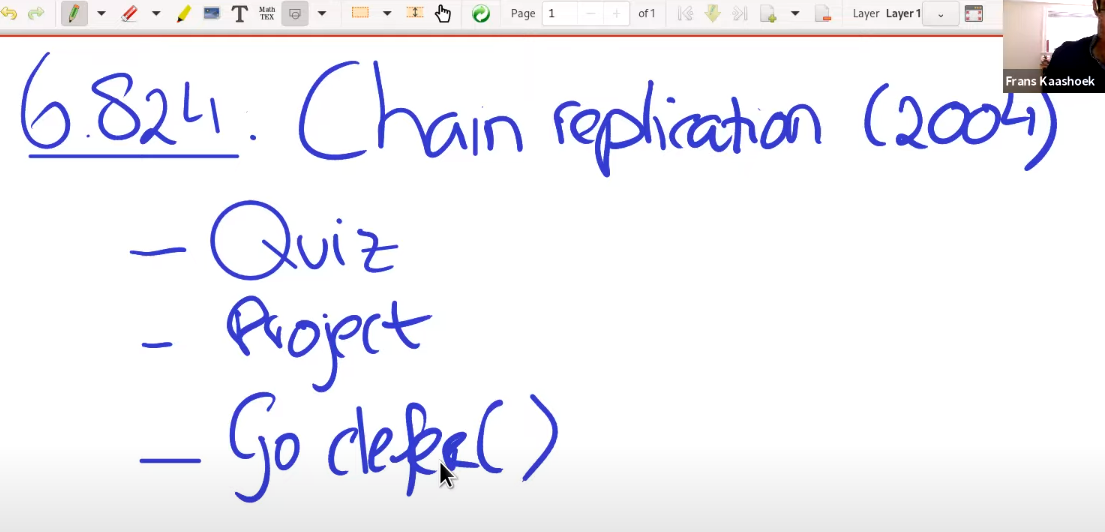 T Math TEX Page 1 of 1 Layer Layer 1
Frans Kaashoek
6.824: Chain replication (2004)
— Quiz
- Project
— Go defer()